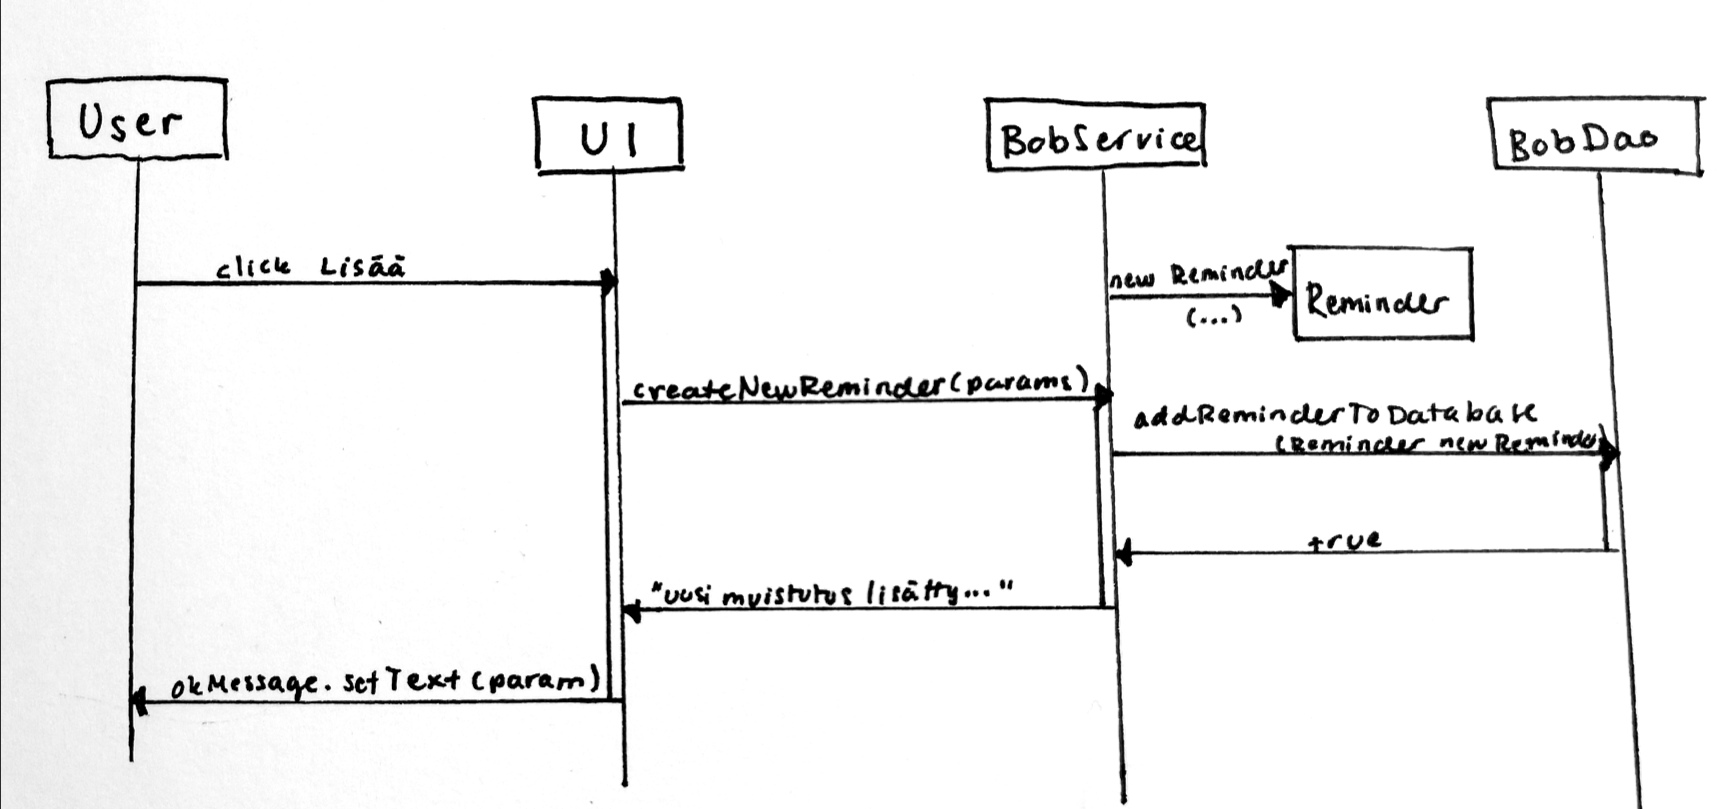 User
UI
BobService
BobDao
click Lisää
new Reminder
(...)
Reminder
createNewReminder(params)
addReminderToDatabase
(Reminder newReminder)
true
"uusi muistutus lisätty..."
okMessage.setText(param)